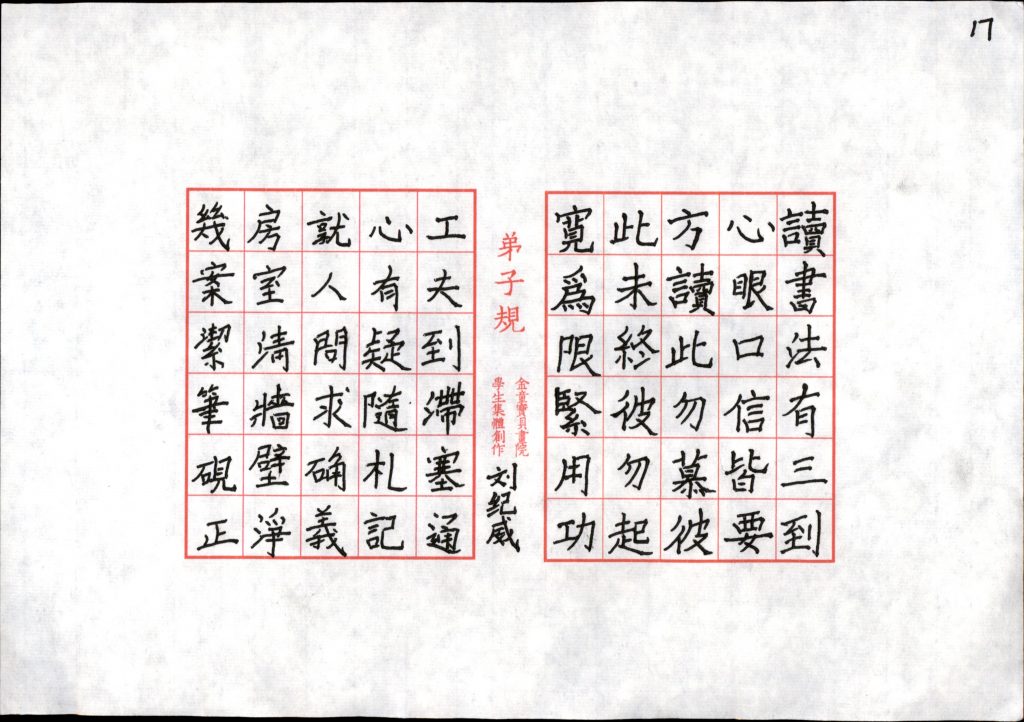 17
讀書法有三到
心眼口信皆要
方讀此勿慕彼
此未終彼勿起
寬爲限緊用功
弟子規
金童寶貝書院
學生集體創作
刘纪威
工夫到滯塞通
心有疑隨札記
就人問求确義
房室清牆壁淨
幾案潔筆硯正